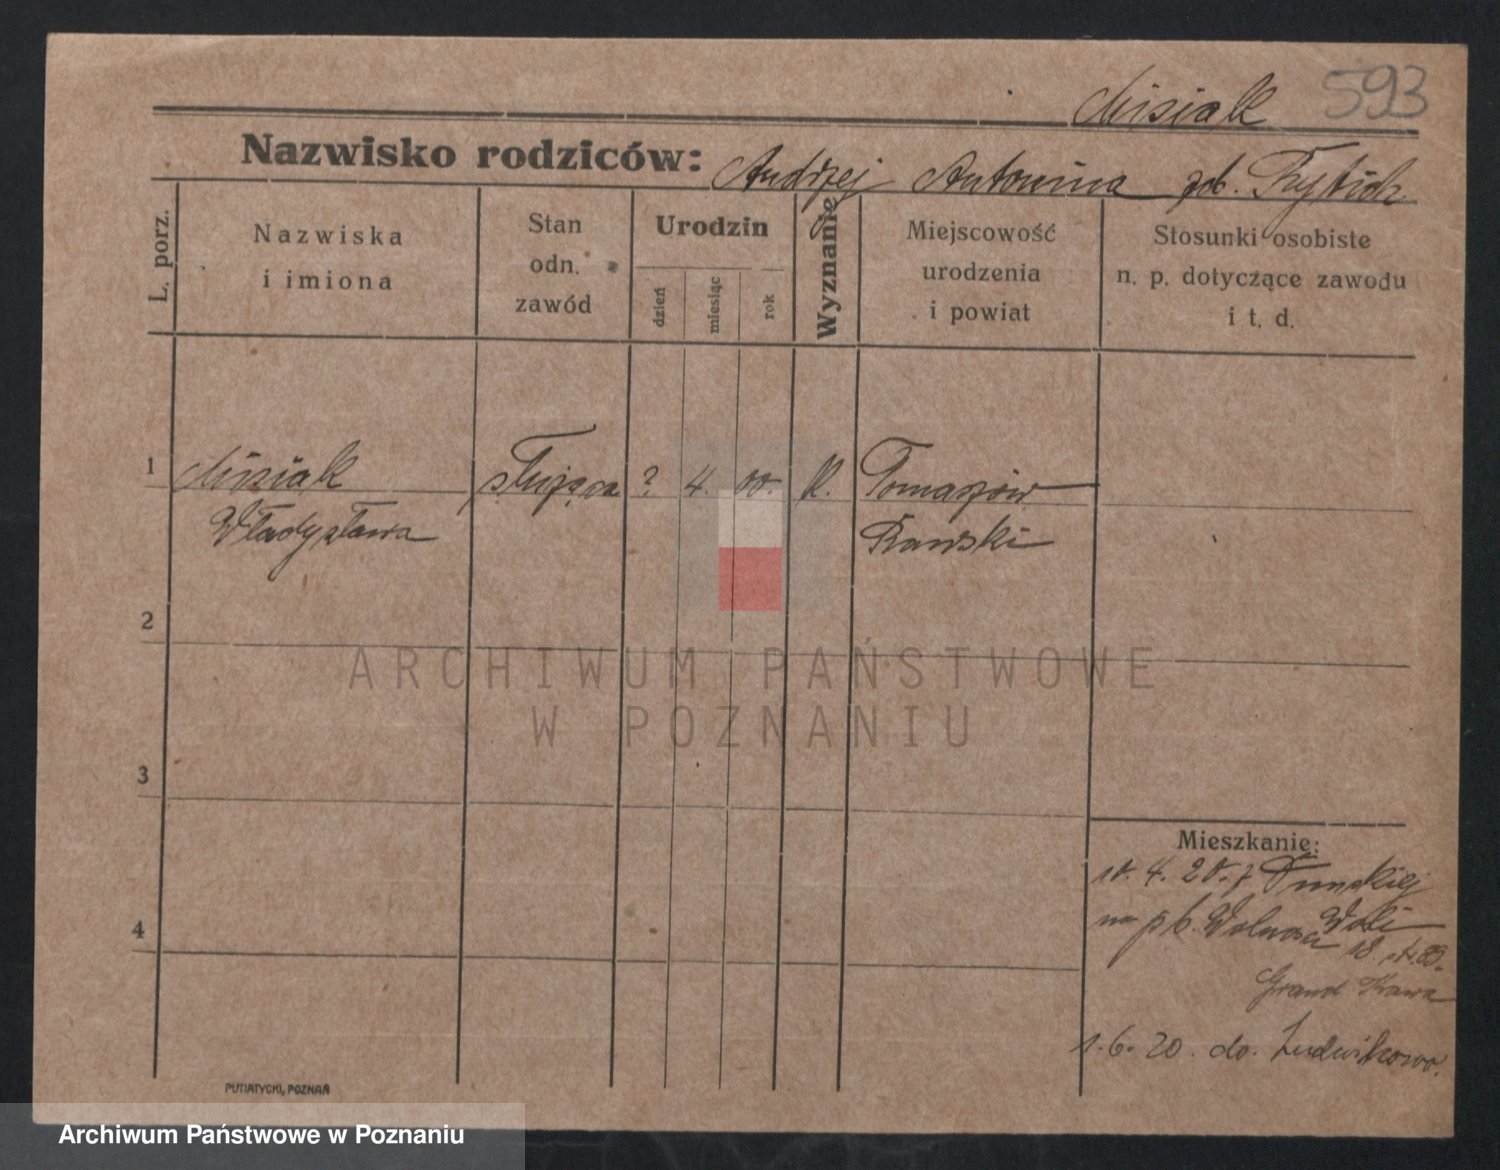 593
Misiak
Nazwisko rodziców: Andrzej Antonina zd. Frytich
L. porz.
Nazwiska
i imiona
Stan
odn.
zawód
Urodzin
dzień
miesiąc
rok
Wyznanie
Miejscowość
urodzenia
i powiat
Stosunki osobiste
n. p. dotyczące zawodu
i t. d.
1 Misiak służąca ? 4. 00. K. Tomaszów
Władysława Rawski
2
ARCHIWUM PAŃSTWOWE
W POZNANIU
3
Mieszkanie:
10. 4. 20. z Woli
na pl. Wolności 18.
4
Grand Kawa
1. 6. 20. do Ludwikowo.
PUTIATYCKI, POZNAŃ
Archiwum Państwowe w Poznaniu